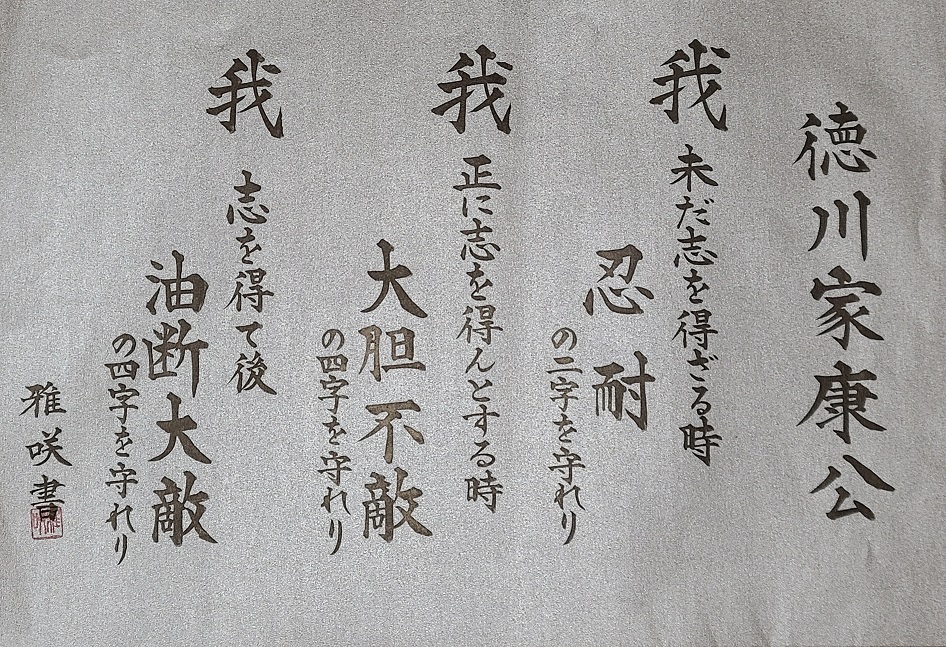 徳川家康公
我
未だ志を得ざる時
忍耐
の二字を守れり
我
正に志を得んとする時
大胆不敵
の四字を守れり
我
志を得て後
油断大敵
の四字を守れり
雅咲書